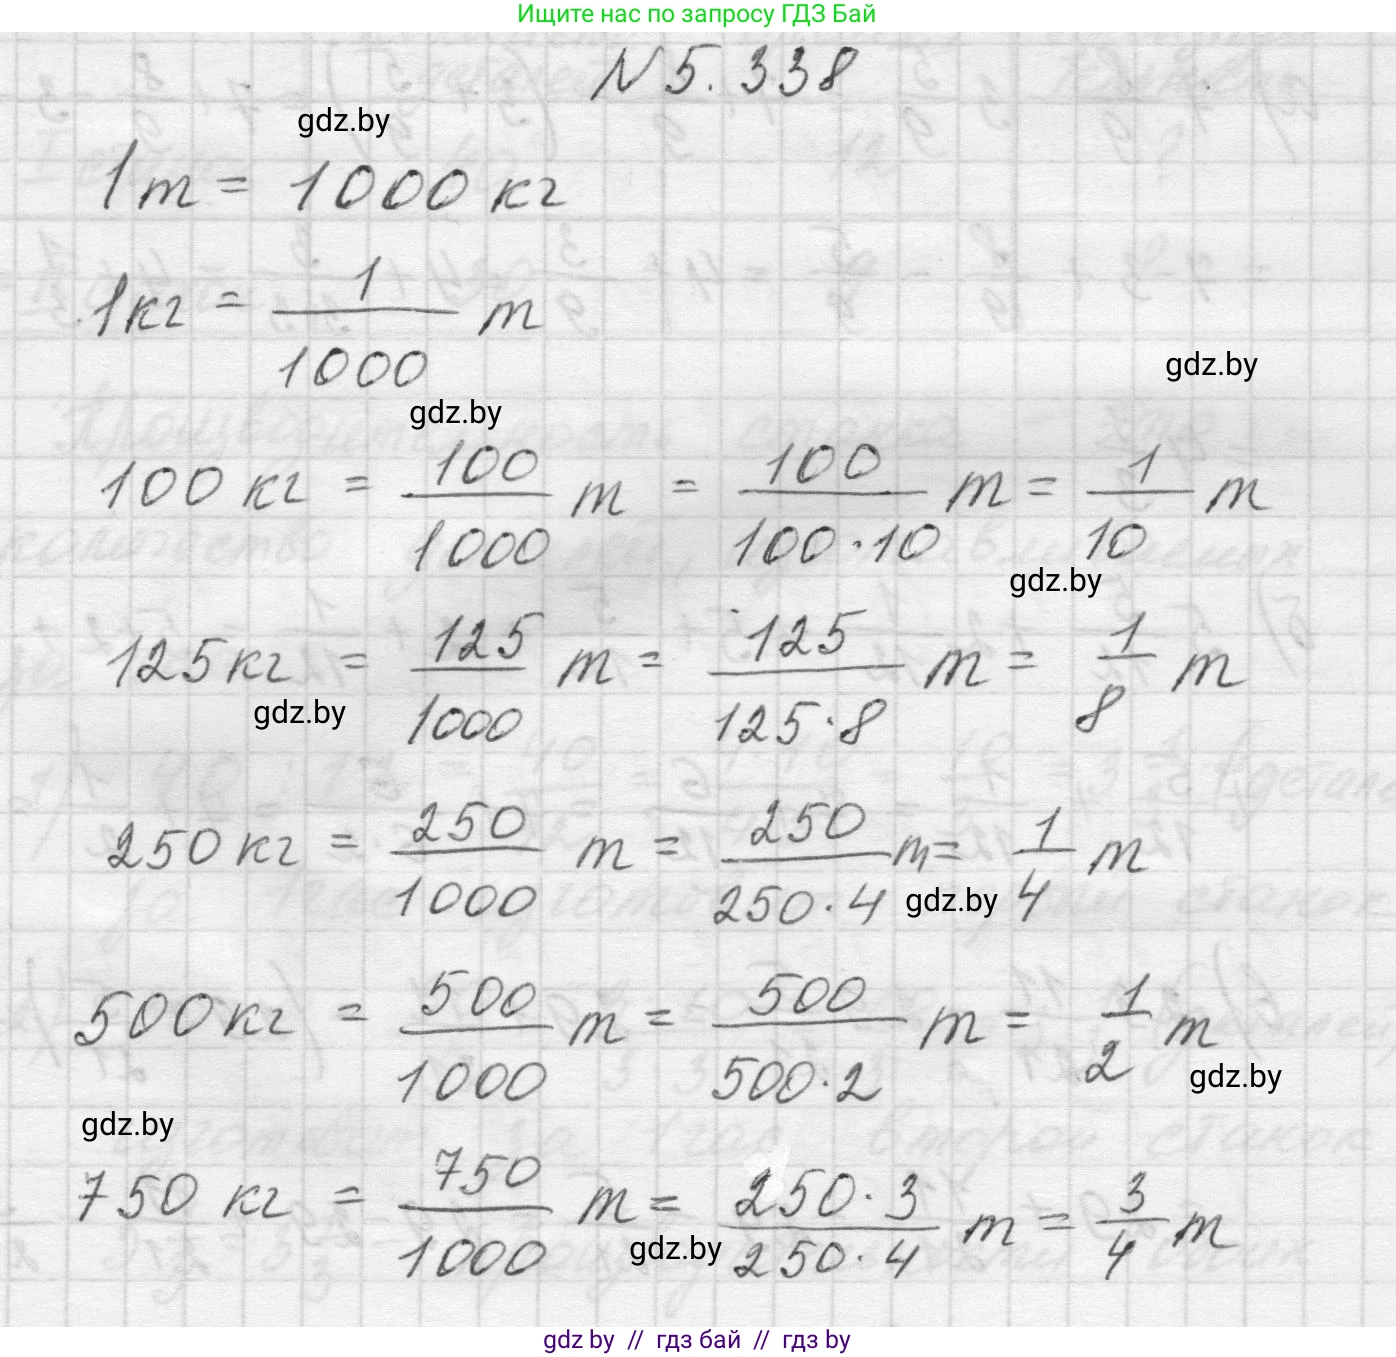 Ищите нас по запросу ГДЗ Бай
N 5.338
gdz.by
1 т = 1000 кг
1 кг = 1/1000 т
gdz.by
gdz.by
100 кг = 100/1000 т = 100/(100·10) т = 1/10 т
gdz.by
125 кг = 125/1000 т = 125/(125·8) т = 1/8 т
gdz.by
250 кг = 250/1000 т = 250/(250·4) т = 1/4 т
gdz.by
500 кг = 500/1000 т = 500/(500·2) т = 1/2 т
gdz.by
gdz.by
750 кг = 750/1000 т = (250·3)/(250·4) т = 3/4 т
gdz.by
gdz by // гдз бай // гдз by